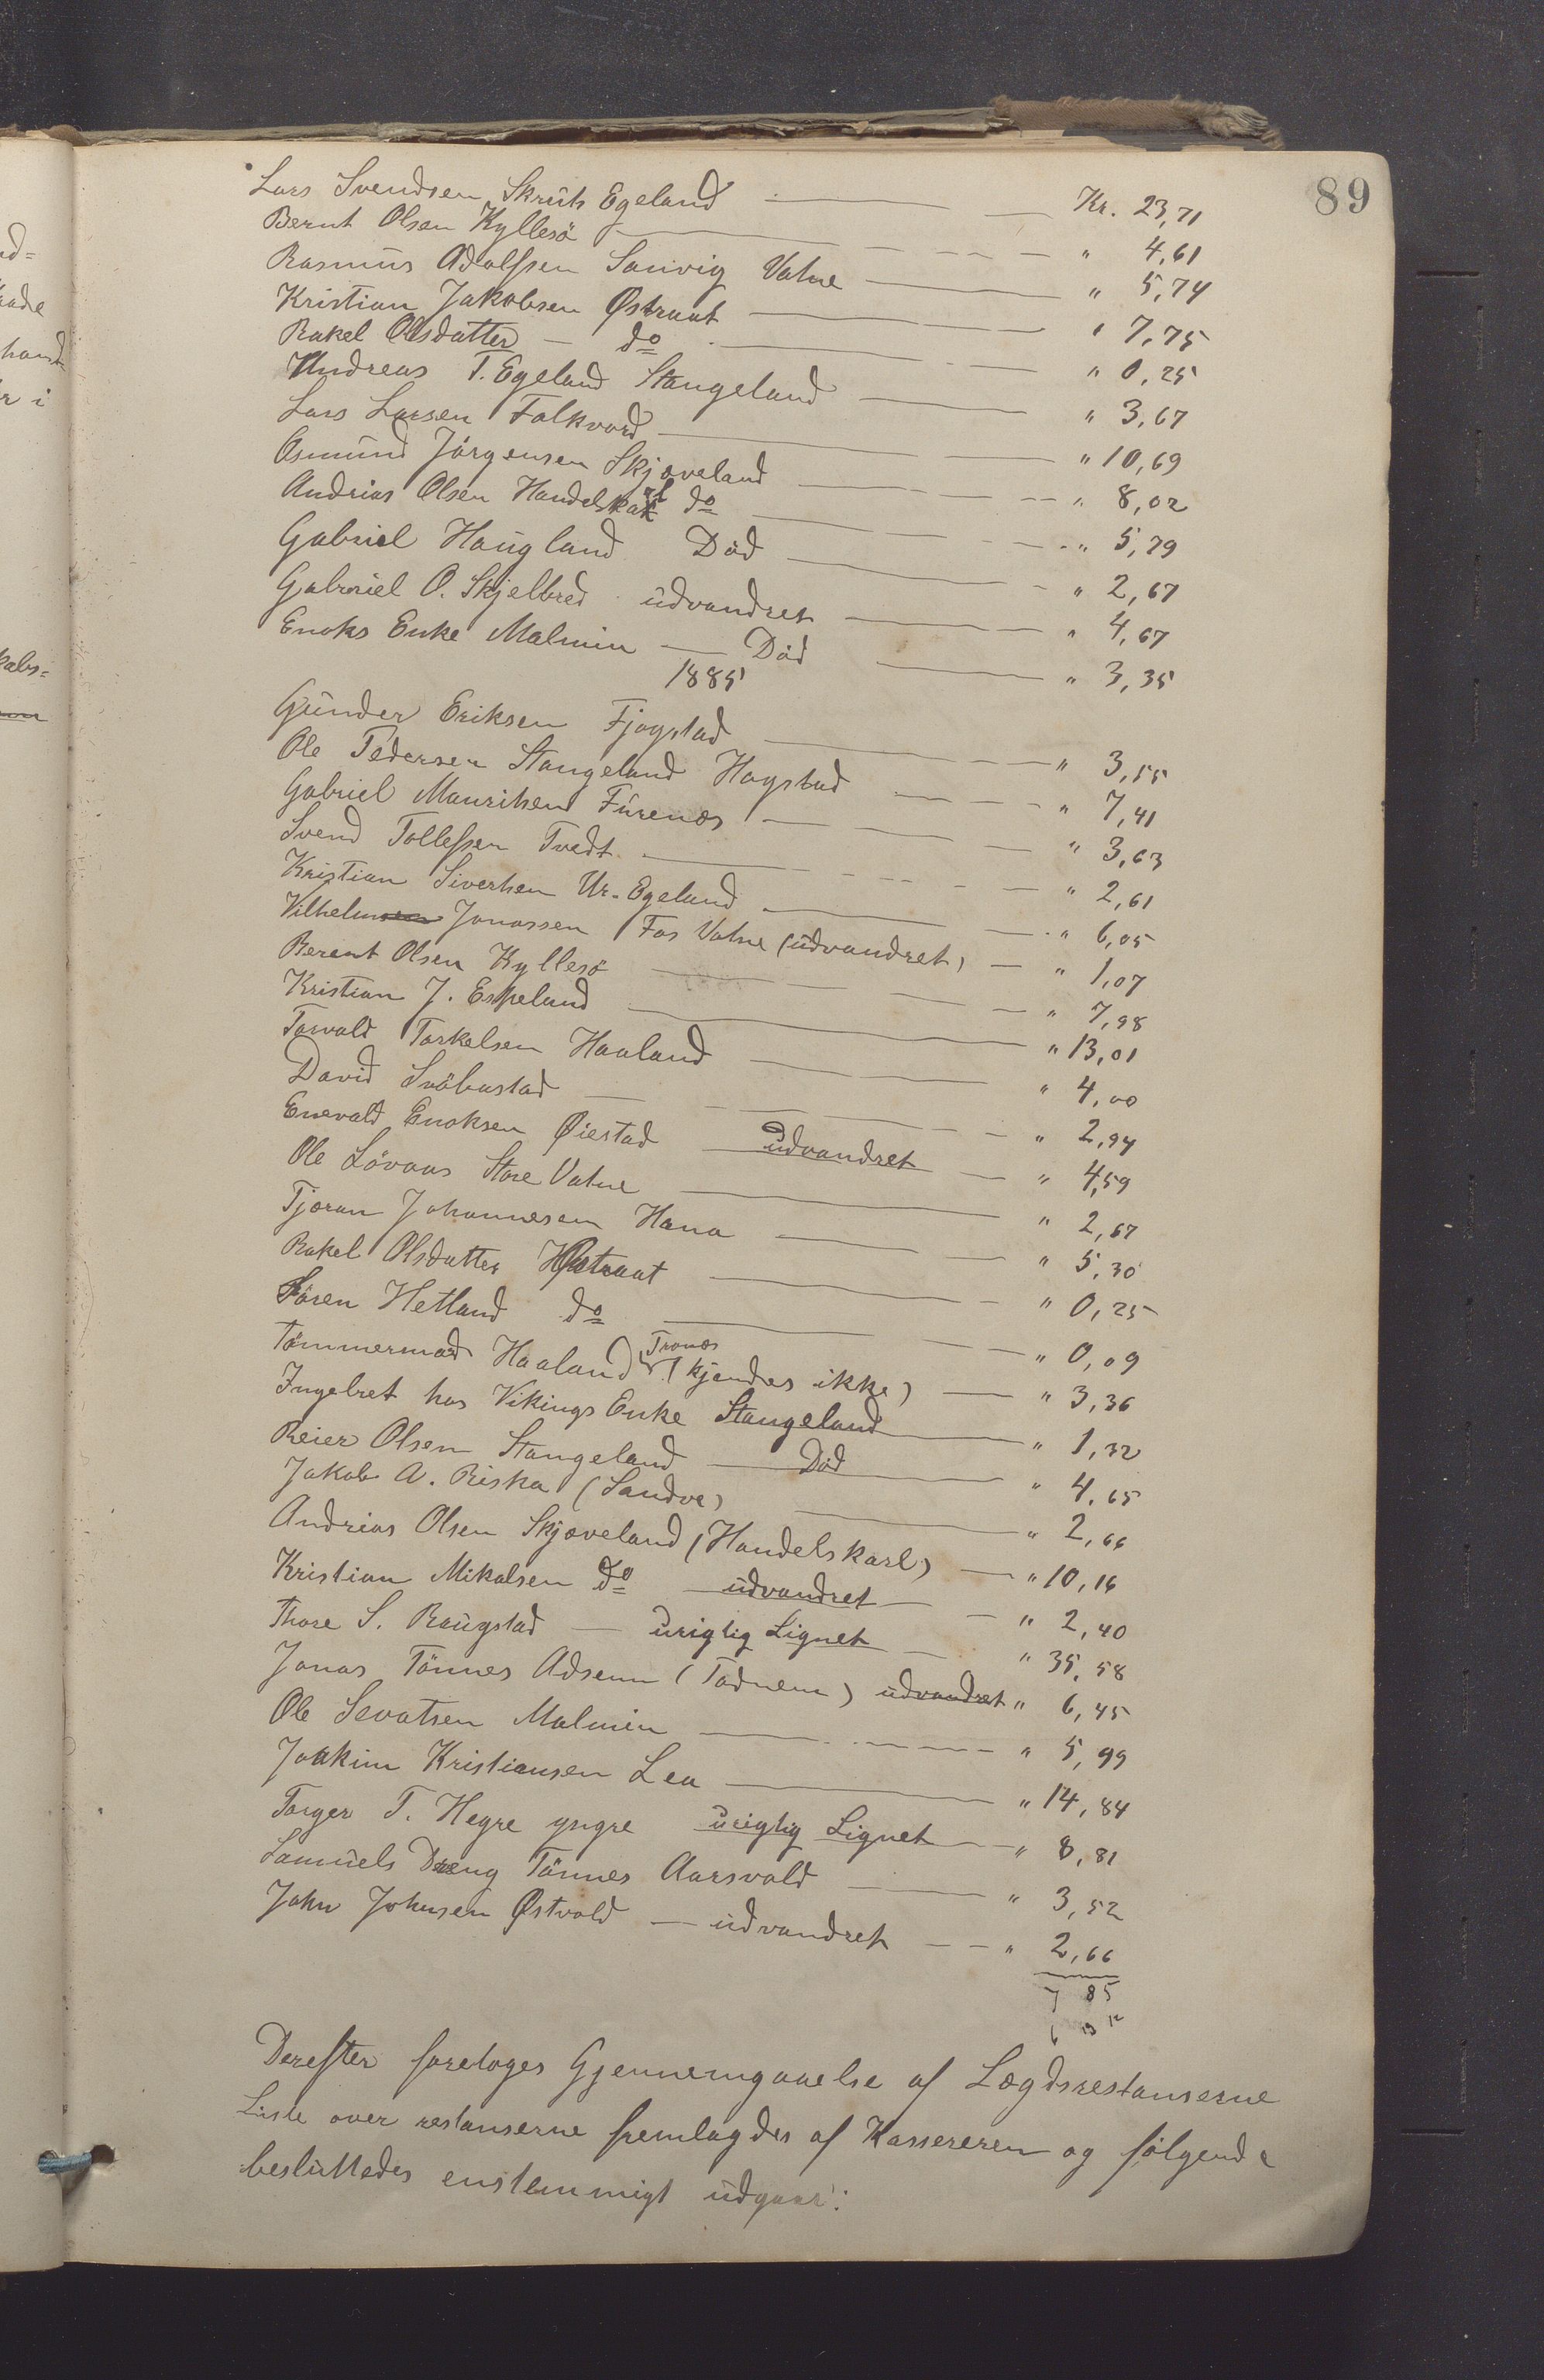 89
Lars Svendsen Skruts Egeland — Kr. 23,71
Bernt Olsen Kyllesö — " 4,61
Rasmus Adolfsen Sanvig Vatne — " 5,74
Kristian Jakobsen Østraat — " 7,75
Rakel Olsdatter — do — " 0,25
Andreas T. Egeland Stangeland — " 3,67
Lars Larsen Folkvord — " 10,69
Asmund Jörgensen Skjæveland — " 8,02
Andrias Olsen Handelskarl do — " 5,79
Gabriel Haugland Död — " 2,67
Gabriel O. Skjelbred udvandret — " 4,67
Enoks Enke Malmin — Död — " 3,35
1885
Gunder Eriksen Fjogstad — " 3,55
Ole Pedersen Stangeland Hogstad — " 7,41
Gabriel Mauritsen Furenes — " 3,63
Svend Tollefsen Tvedt — " 2,61
Kristian Sivertsen Ur. Egeland — " 6,05
Vilhelm Jonassen Fos Vatne (udvandret) — " 1,07
Berent Olsen Kyllesö — " 7,98
Kristian J. Espeland — " 13,01
Torvald Torkelsen Haaland — " 4,00
David Svöbustad — " 2,94
Enevald Enoksen Øiestad udvandret — " 4,59
Ole Lövaas Store Vatne — " 2,67
Tjøran Johannesen Hana — " 5,30
Rakel Olsdatter Østraat — " 0,25
Sören Hetland do — " 0,09
Tömmermand Haaland Tronæs (kjendes ikke) — " 3,36
Ingebret hos Vikings Enke Stangeland — " 1,32
Reier Olsen Stangeland — Död — " 4,65
Jakob A. Riska (Sandve) — " 2,66
Andrias Olsen Skjæveland (Handelskarl) — " 10,16
Kristian Mikalsen do — udvandret — " 2,40
Thore S. Raugstad — urigtig Lignet — " 35,58
Jonas Tönnes Adsenn (Tadnem) udvandret " 6,45
Ole Sevatsen Malmin — " 5,99
Joakim Kristiansen Lea — " 14,84
Torger T. Hegre yngre urigtig Lignet — " 8,81
Samuels Dreng Tönnes Aarsvold — " 3,52
John Johnsen Østvold — udvandret — " 2,66
7 85
Derefter foretoges Gjennemgaaelse af Lægdsrestanserne
Liste over restanserne fremlagdes af Kassereren og følgende
besluttedes enstemmigt udgaar: